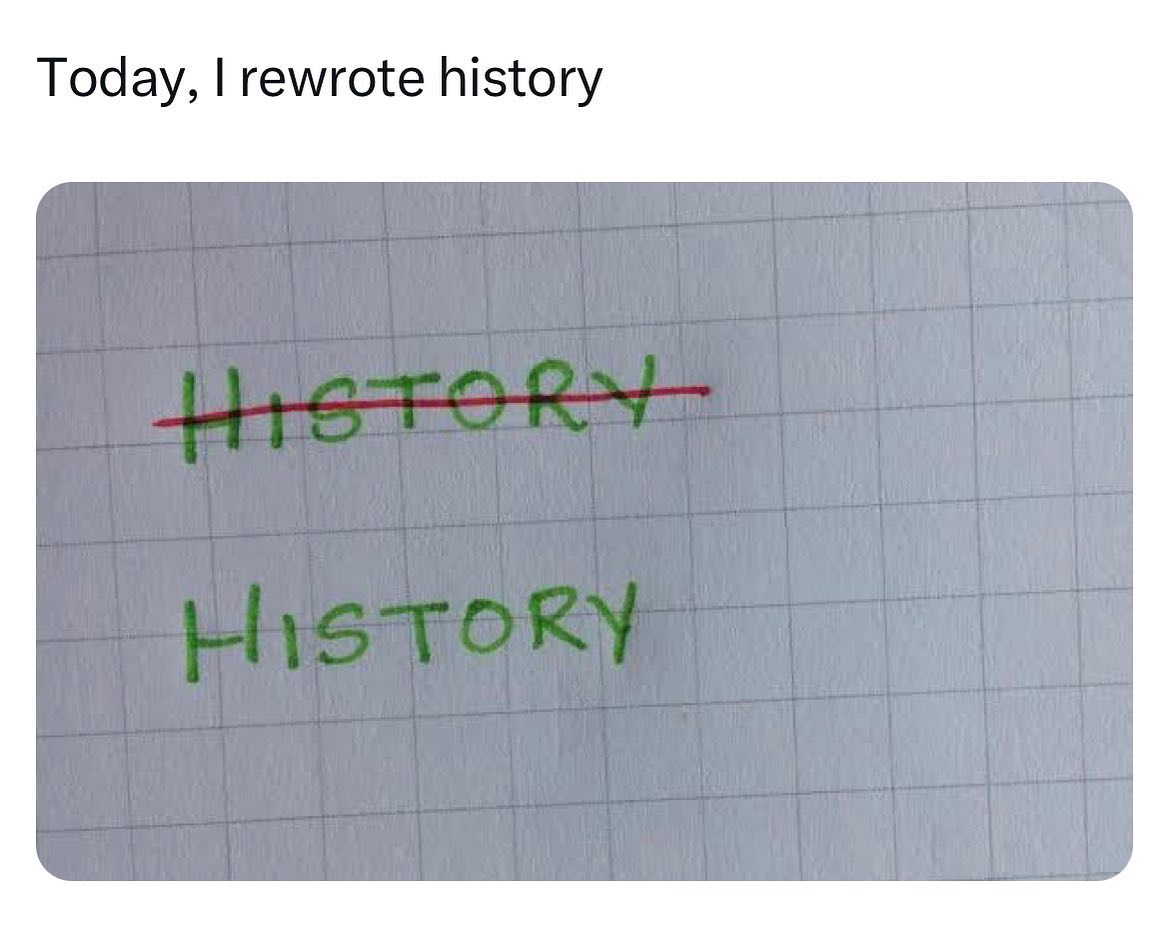 Today, I rewrote history
HISTORY
HISTORY